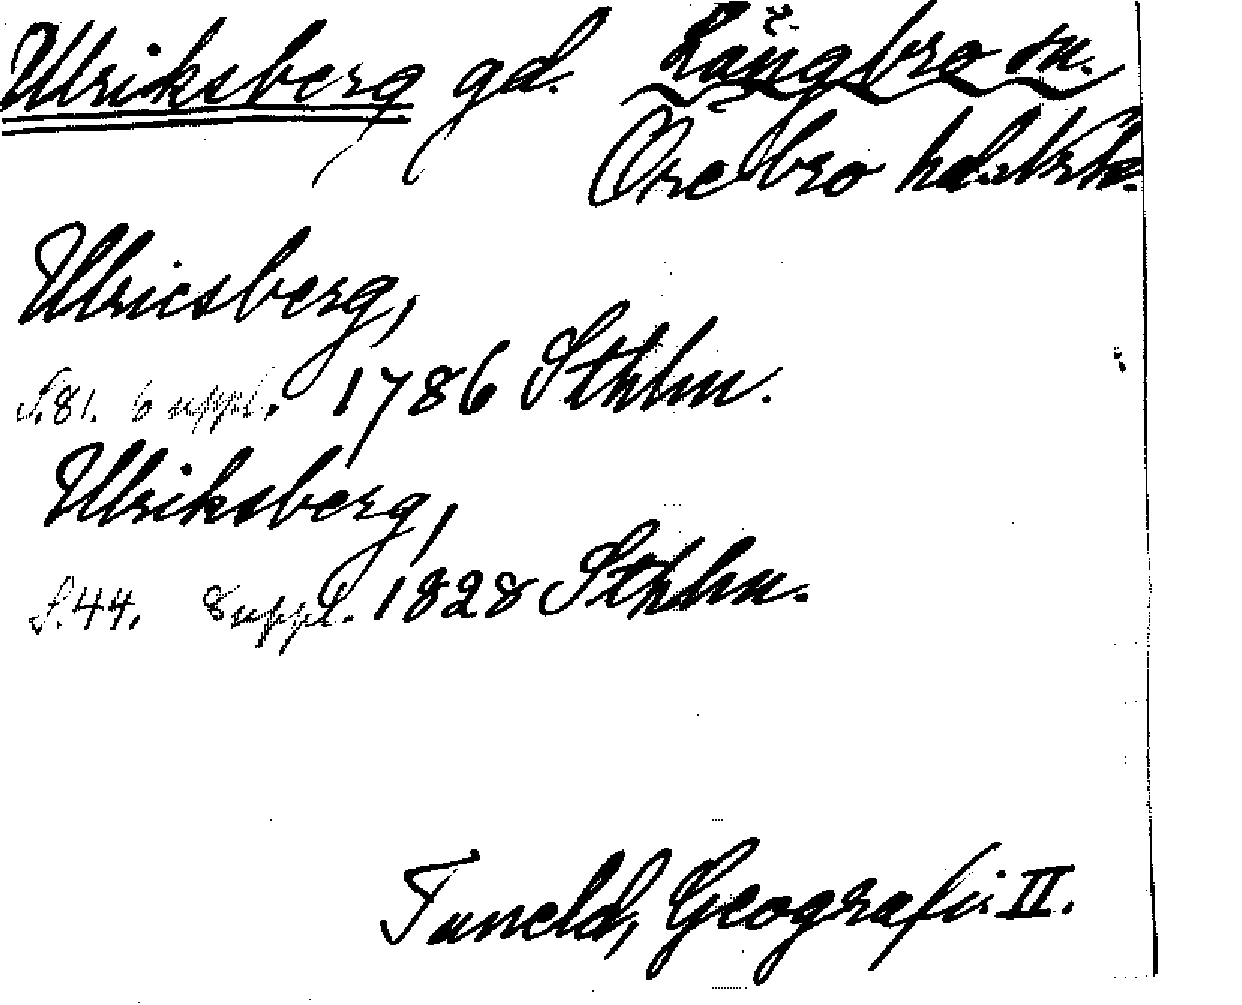 Ulriksberg gd. Längbro sn.
Örebro hd. Nrke.
Ulricsberg,
S. 81. 6 uppl. 1786 Sthlm.
Ulriksberg,
S. 44. 8 uppl. 1828 Sthlm.
Tuneld, Geografi II.